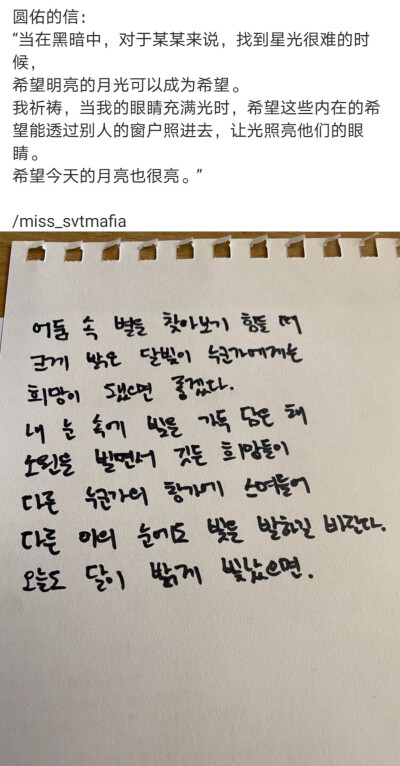 圆佑的信：
“当在黑暗中，对于某某来说，找到星光很难的时
候，
希望明亮的月光可以成为希望。
我祈祷，当我的眼睛充满光时，希望这些内在的希
望能透过别人的窗户照进去，让光照亮他们的眼
睛。
希望今天的月亮也很亮。”
/miss_svtmafia
어둠 속 별들 찾아보기 힘들 때
크게 밝은 달빛이 누군가에게는
희망이 됐으면 좋겠다.
내 눈 속에 빛을 가득 담은 채
소원을 빌면서 깃든 희망들이
다른 누군가의 창가에 스며들어
다른 이의 눈에도 빛을 발하길 바란다.
오늘도 달이 밝게 빛났으면.